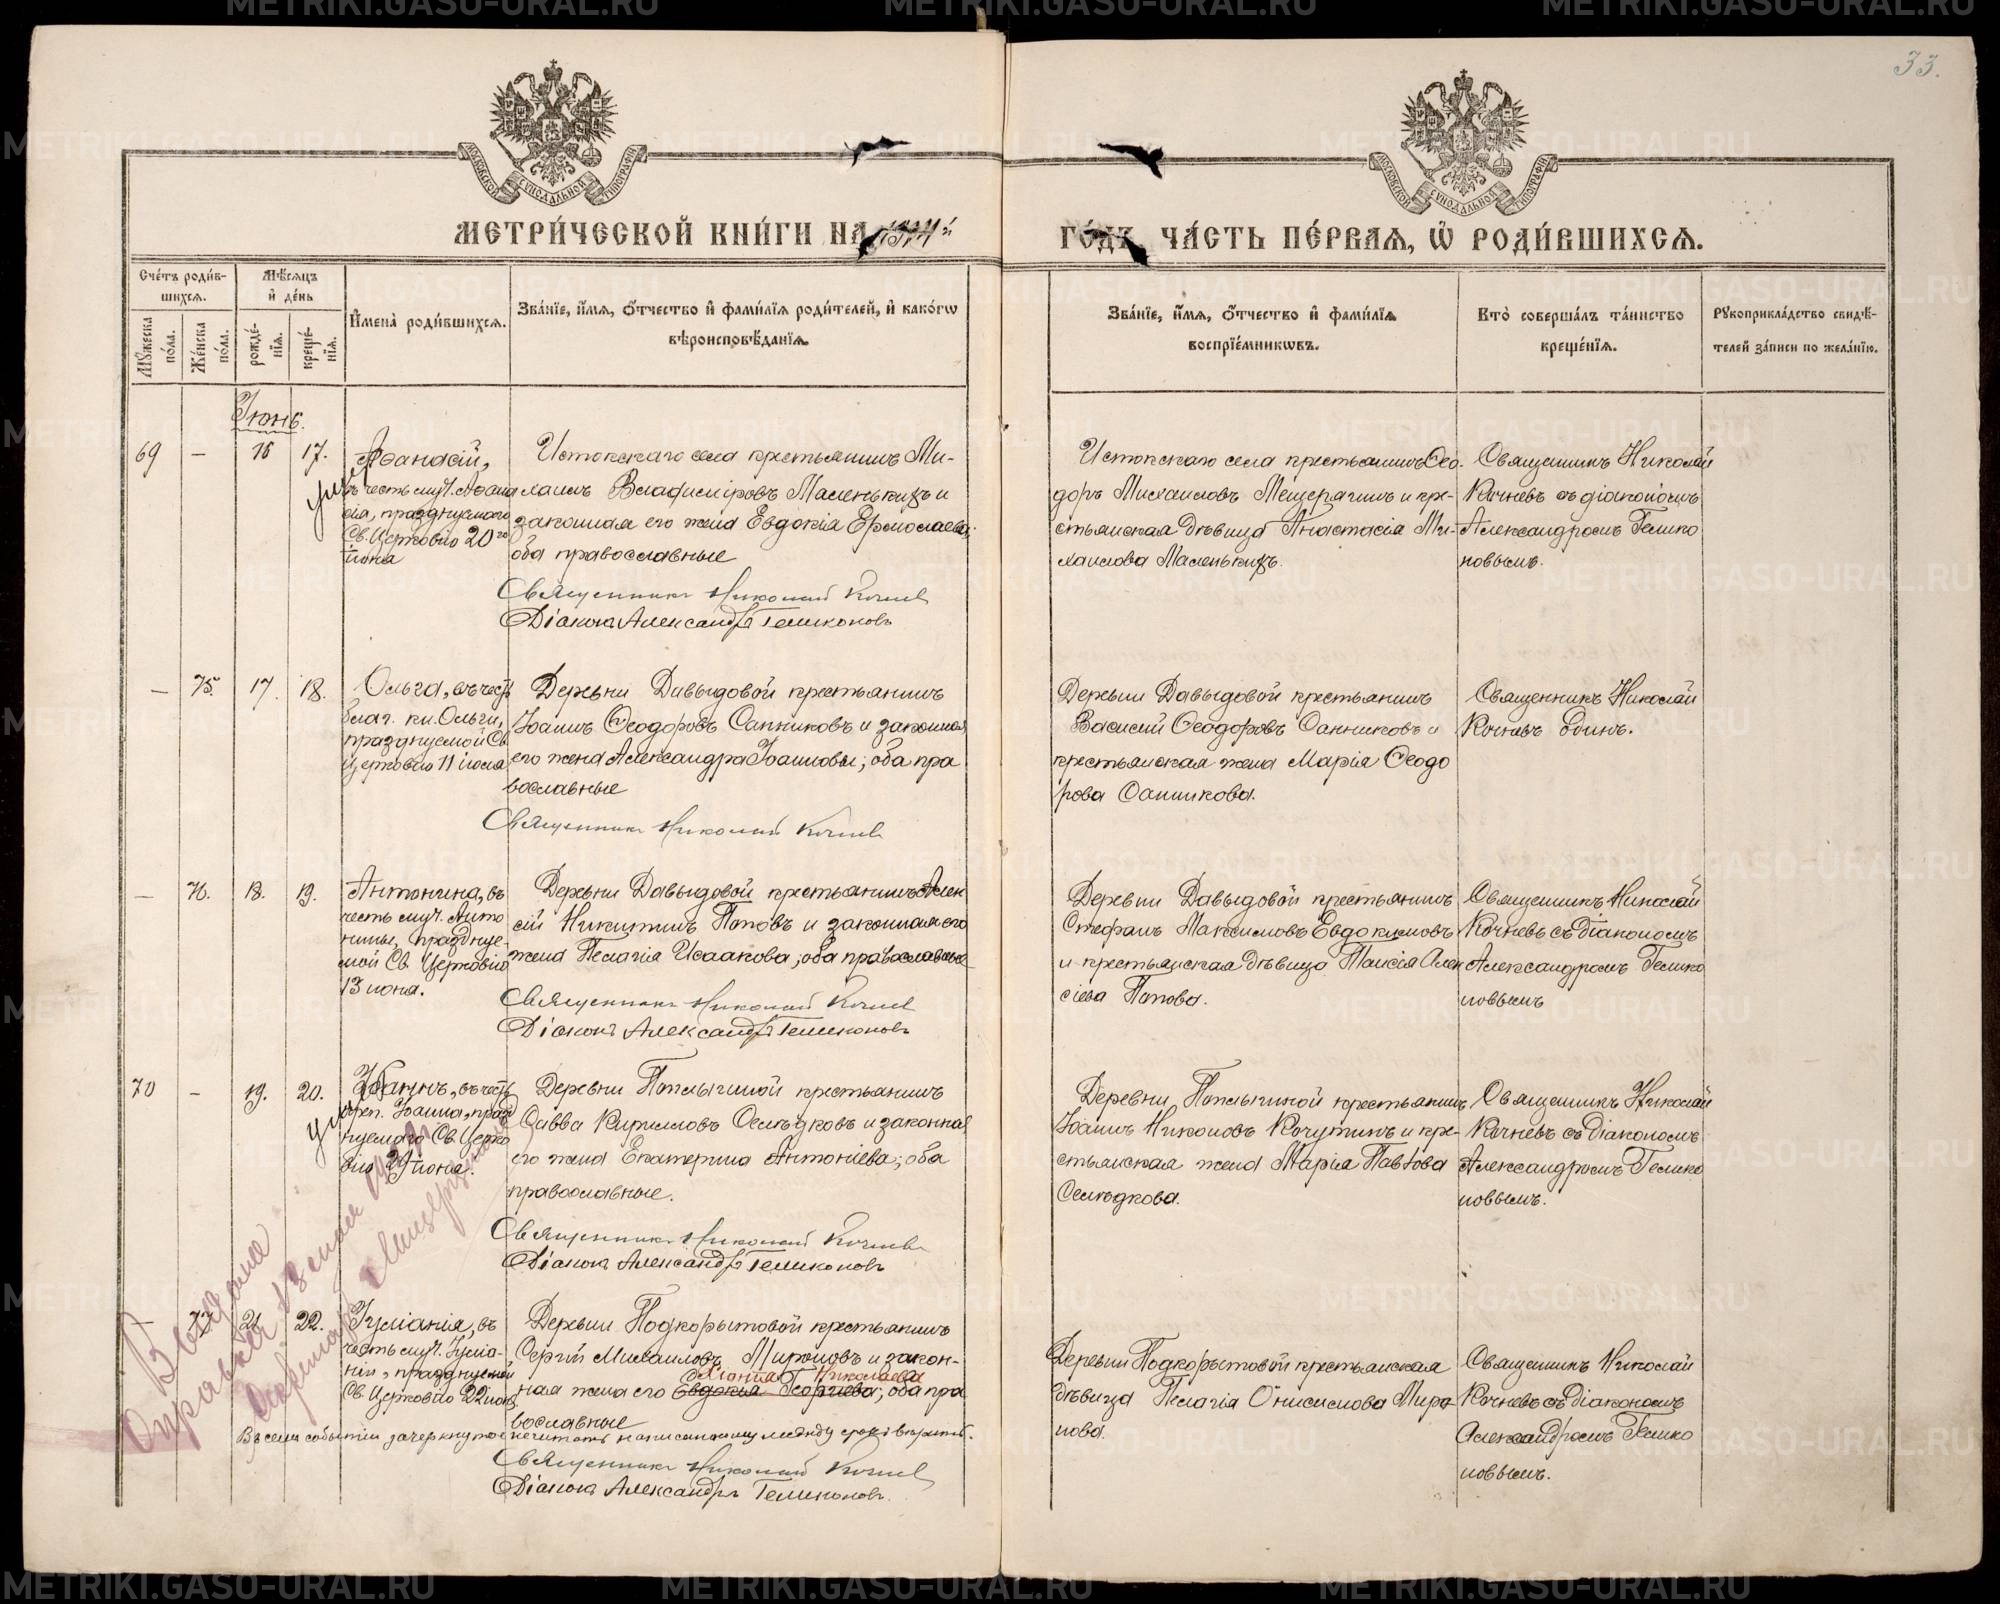 33.
МОСКОВСКОЙ СѴНОДАЛЬНОЙ ТИПОГРАФІИ
МОСКОВСКОЙ СѴНОДАЛЬНОЙ ТИПОГРАФІИ
МЕТРИ́ЧЕСКОЙ КНИ́ГИ НА
ГО́ДЪ, ЧА́СТЬ ПЕ́РВАЯ, Ѿ РОДИ́ВШИХСЯ.
Сче́тъ роди́в-
шихся.
Мѣ́сяцъ
и҆ де́нь
Мꙋ́жеска
по́ла.
Же́нска
по́ла.
рожде́-
нїя.
креще́-
нїя.
И҆мена̀ роди́вшихся.
Зва́нїе, и҆́мя, ѻ҆́тчество и҆ фами́лїя роди́телей, и҆ како́гѡ
вѣроисповѣ́данїя.
Зва́нїе, и҆́мя, ѻ҆́тчество и҆ фами́лїя
воспрїе́мникѡвъ.
Кто̀ соверша́лъ та́инство
креще́нїя.
Рꙋкоприкла́дство свидѣ́-
телей за́писи по жела́нїю.
Іюнь.
69 – 16 17. Аѳанасій,
въ честь муч. Аѳана
сія, празднуемаго
Св. Церковію 20го
іюня
Истокскаго села крестьянинъ Ми-
хаилъ Владиміровъ Маленькихъ и
законная его жена Евдокія Ермолаева;
оба православные
Священникъ Николай Кочнев
Діаконъ Александръ Геликоновъ
Истокскаго села крестьянинъ Ѳео-
доръ Михаиловъ Мещерягинъ и кре-
стьянская дѣвица Анастасія Ми-
хаилова Маленькихъ.
Священникъ Николай
Кочневъ съ діакономъ
Александромъ Гелико
новымъ.
– 75. 17. 18. Ольга, въ честь
благ. кн. Ольги,
празднуемой Св.
Церковію 11 іюля
Деревни Давыдовой крестьянинъ
Іоаннъ Ѳеодоровъ Санниковъ и законная
его жена Александра Іоаннова; оба пра
вославные
Священникъ Николай Кочнев
Деревни Давыдовой крестьянинъ
Василій Ѳеодоровъ Санниковъ и
крестьянская жена Марія Ѳеодо
рова Санникова.
Священникъ Николай
Кочневъ одинъ.
– 76. 18. 19. Антонина, въ
честь муч. Анто
нины, празднуе-
мой Св. Церковію
13 іюня.
Деревни Давыдовой крестьянинъ Алек
сій Никитинъ Поповъ и законная его
жена Пелагія Исаакова; оба православные
Священникъ Николай Кочнев
Діаконъ Александръ Геликоновъ
Деревни Давыдовой крестьянинъ
Стефанъ Максимовъ Евдокимовъ
и крестьянская дѣвица Таисія Алек
сіева Попова.
Священникъ Николай
Кочневъ съ діакономъ
Александромъ Гелико
новымъ
70 – 19. 20. Іоаннъ, въ честь
преп. Іоанна, празд
нуемаго Св. Церко
вію 29 іюня.
Деревни Потылгиной крестьянинъ
Савва Кирилловъ Селѣдковъ и законная
его жена Екатерина Антоніева; оба
православные.
Священникъ Николай Кочневъ
Діаконъ Александръ Геликоновъ
Деревни Потылгиной крестьянинъ
Іоаннъ Никоновъ Кочуткинъ и кре-
стьянская жена Марія Павлова
Селѣдкова.
Священникъ Николай
Кочневъ съ діакономъ
Александромъ Гелико
новымъ.
– 77. 21. 22. Іуліанія, въ
честь муч. Іуліа-
ніи, празднуемой
Св. Церковію 22 іюня
Деревни Подкорытовой крестьянинъ
Сергій Михаиловъ Мироновъ и закон-
Ѳеонія Николаева
ная жена его Евдокія Георгіева; оба пра
вославные
Въ семъ событіи зачеркнутое не читать написанному между строкъ вѣрить.
Священникъ Николай Кочнев
Діаконъ Александръ Геликоновъ.
Деревни Подкорытовой крестьянская
дѣвица Пелагія Онисимова Миро
нова.
Священникъ Николай
Кочневъ съ діакономъ
Александромъ Гелико
новымъ.
Выдана
справка
METRIKI.GASO-URAL.RU